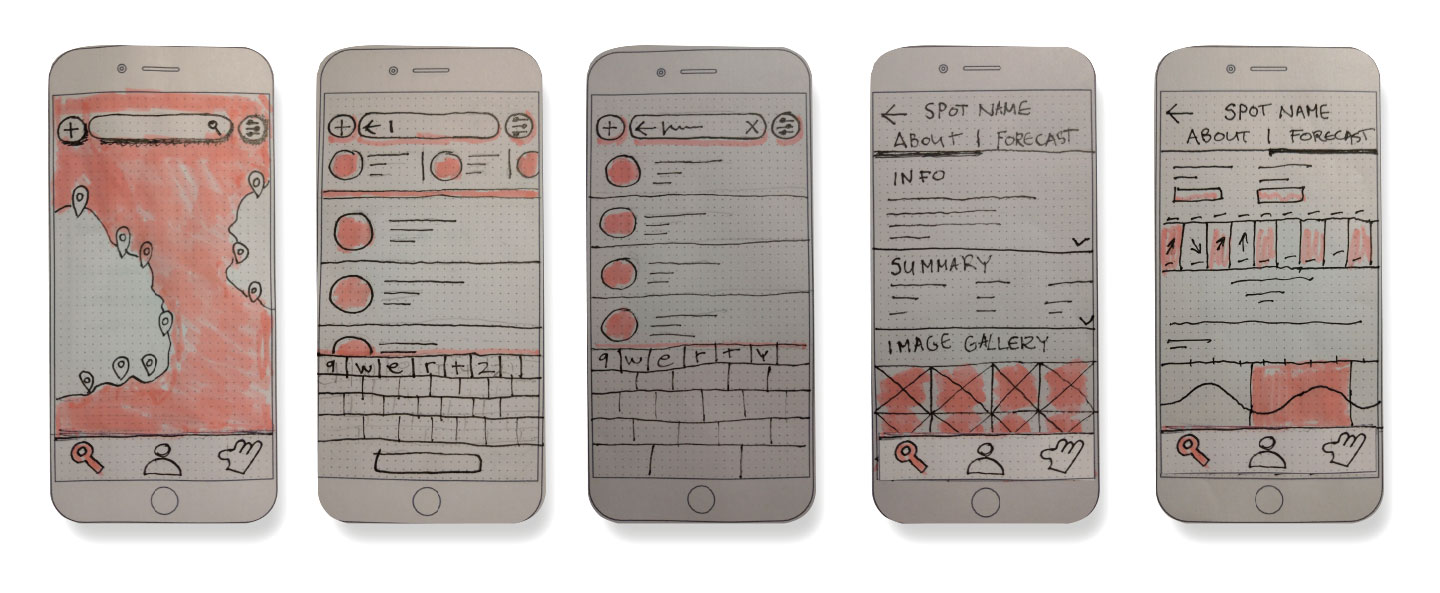 q w e r t z
q w e r t y
SPOT NAME
ABOUT | FORECAST
INFO
SUMMARY
IMAGE GALLERY
SPOT NAME
ABOUT | FORECAST